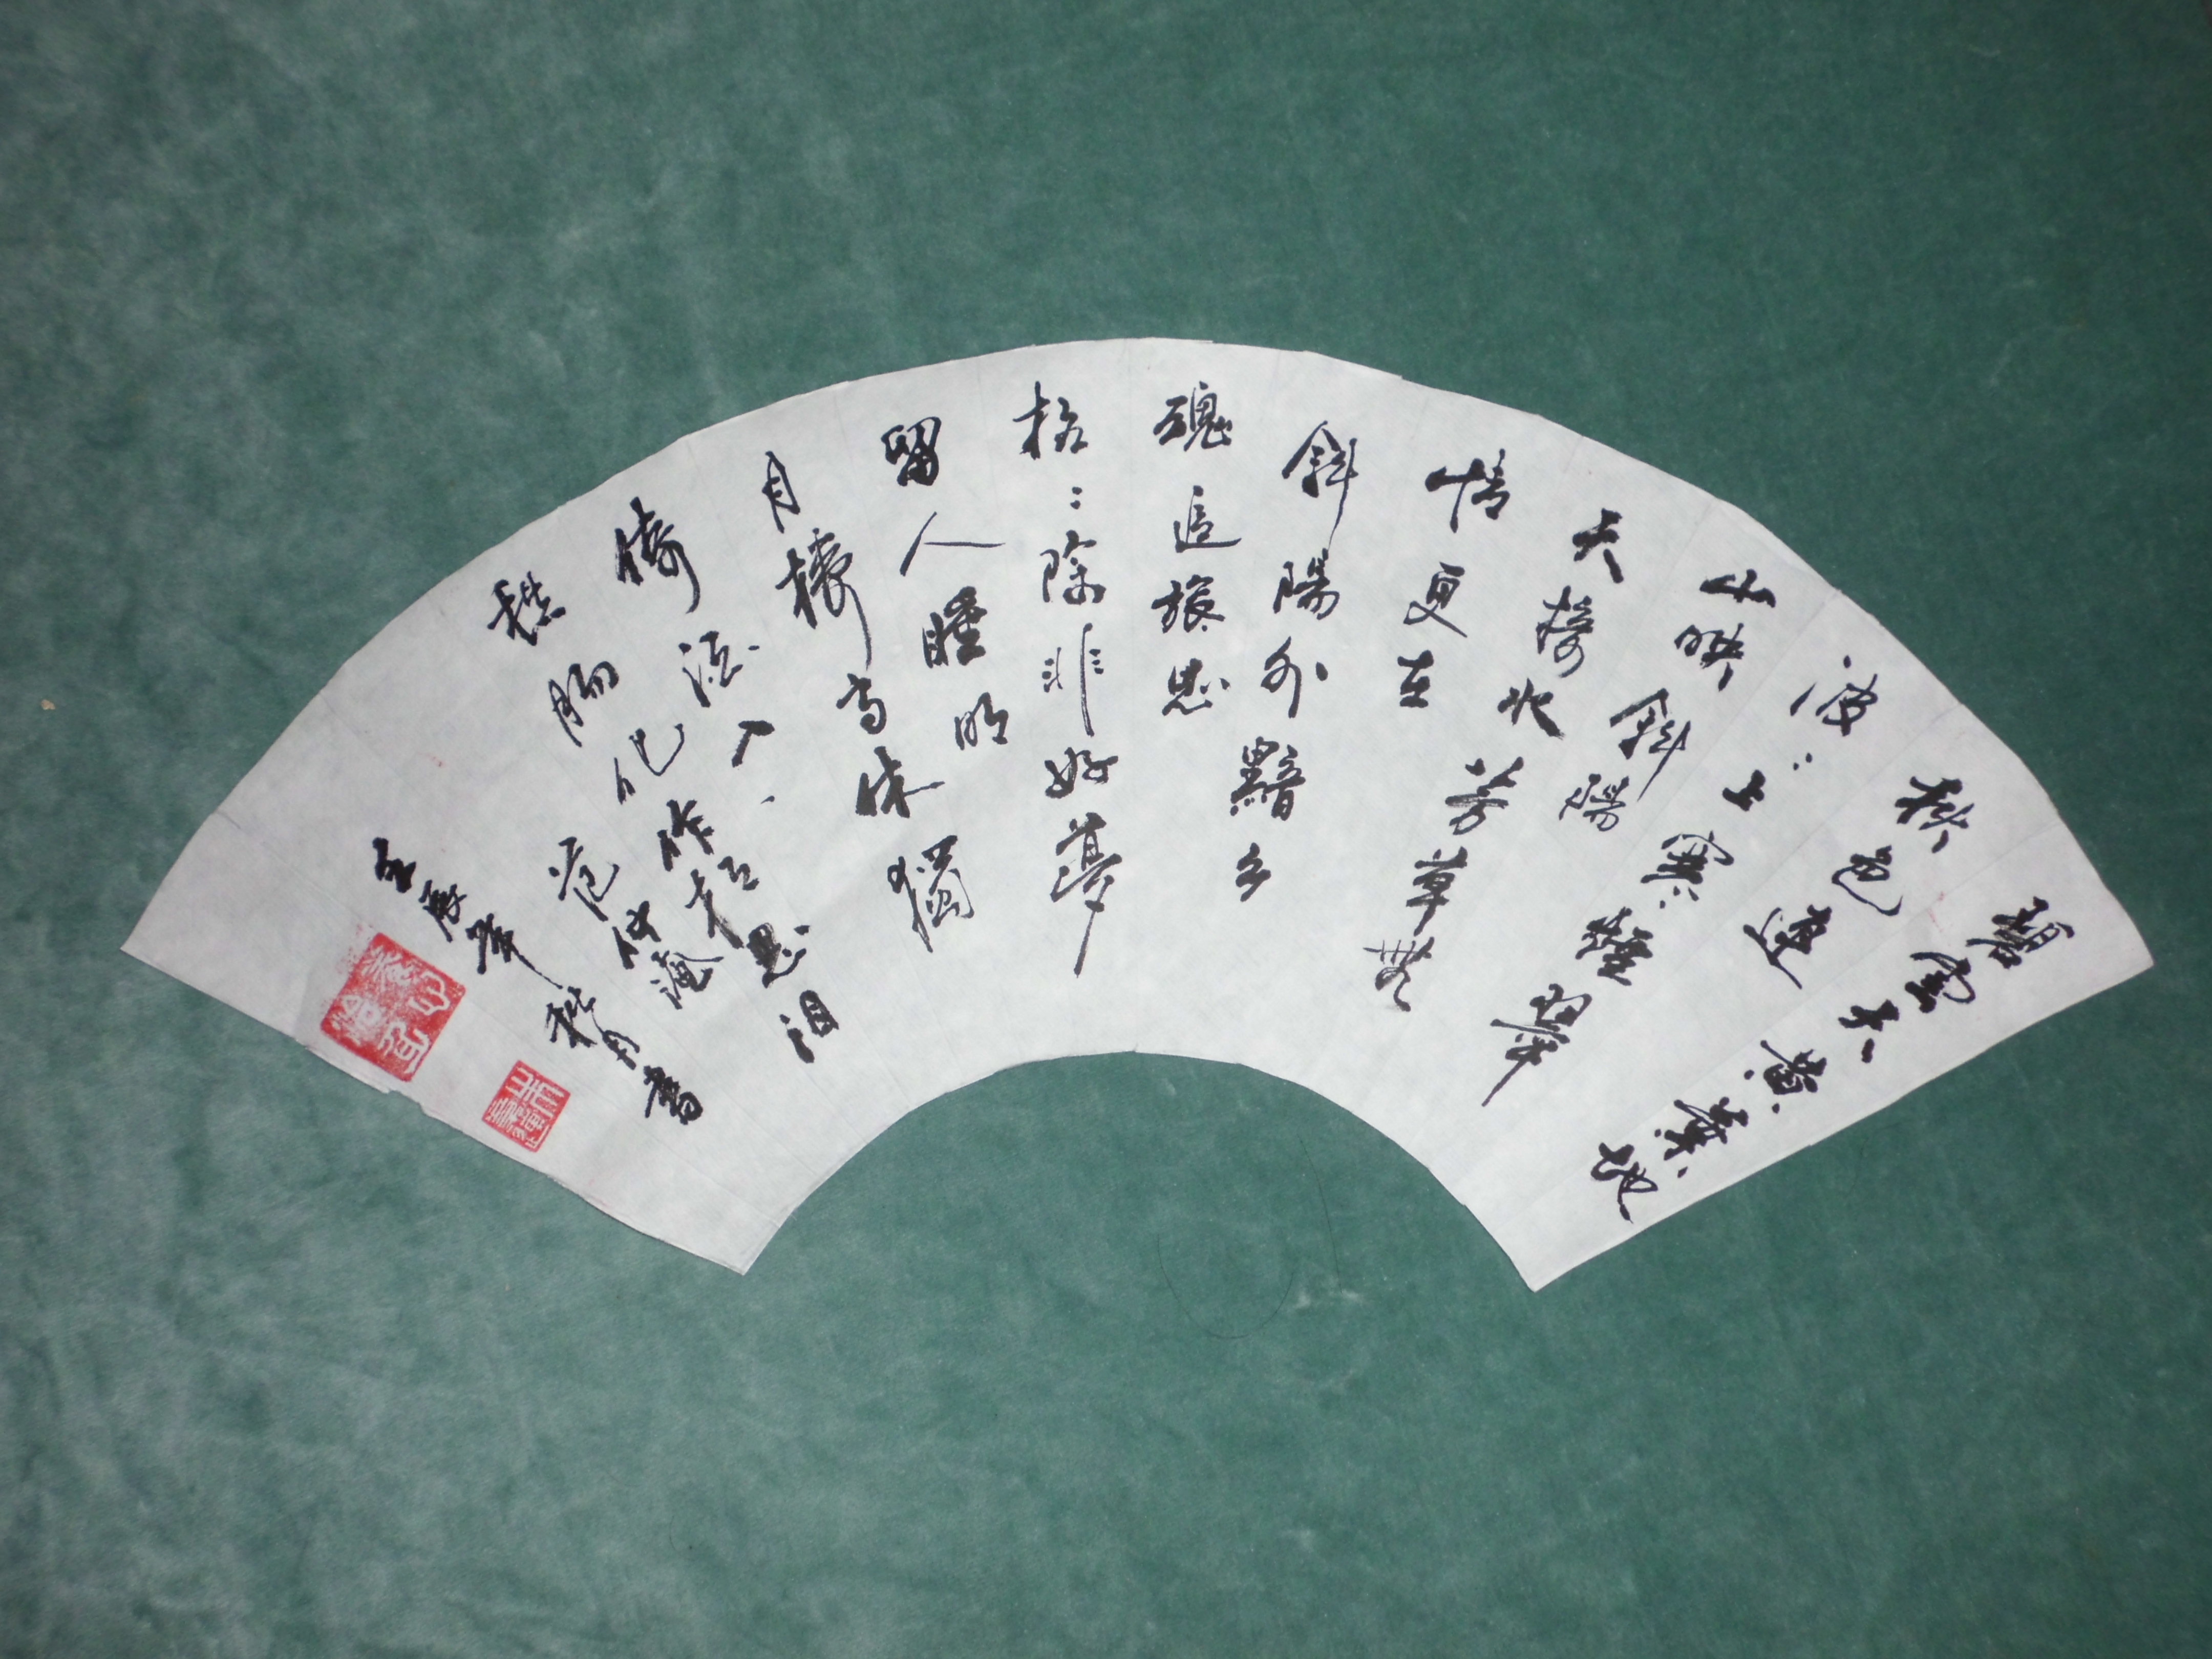 碧雲天黃葉地
秋色連
波〻上寒煙翠
山映斜陽
天接水芳草無
情更在
斜陽外黯乡
魂追旅思
〻除非好夢
留人睡明
月樓高休獨
倚酒入
愁腸化作相思泪
范仲淹
壬辰年秋月書